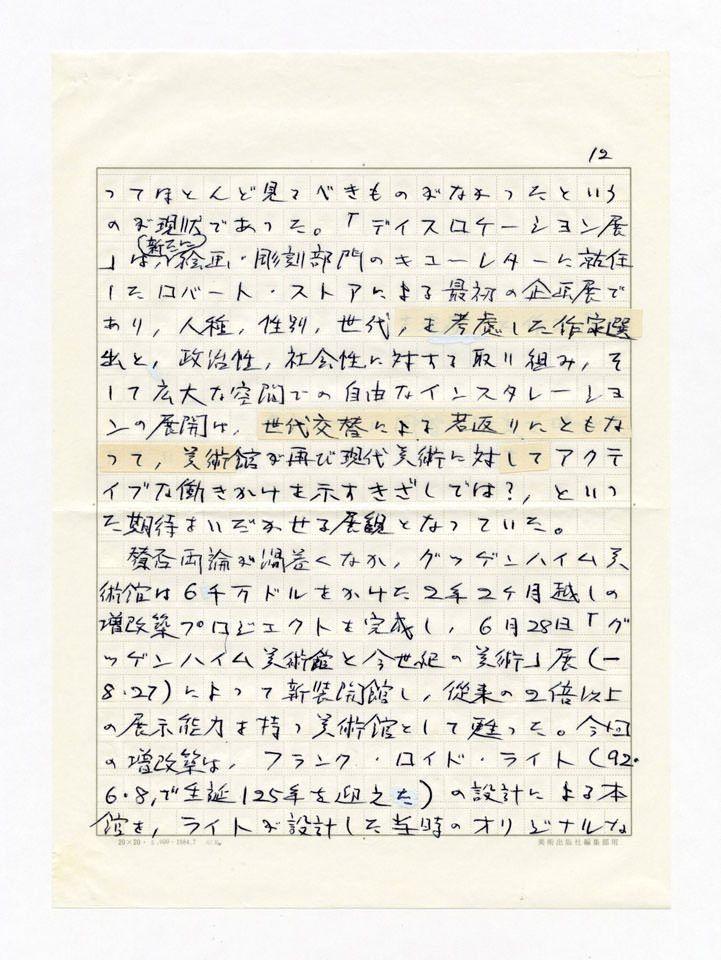 12
ってほとんど見るべきものがなかったという
のが現状であった。「ディスロケーション展
新たに
」は、絵画・彫刻部門のキューレターに就任
したロバート・ストアによる最初の企画展で
あり，人種，性別，世代，を考慮した作家選
出と，政治性，社会性に対する取り組み，そ
して広大な空間での自由なインスタレーショ
ンの展開は，世代交替による若返りにともな
って，美術館が再び現代美術に対してアクテ
ィブな働きかけを示すきざしでは?，といっ
た期待をいだかせる展観となっていた。
賛否両論が渦巻くなか，グッゲンハイム美
術館は6千万ドルをかけた2年2ヶ月越しの
増改築プロジェクトを完成し，6月28日「グ
ッゲンハイム美術館と今世紀の美術」展(—
8.27)によって新装開館し，従来の2倍以上
の展示能力を持つ美術館として甦った。今回
の増改築は，フランク・ロイド・ライト(92.
6.8,で生誕125年を迎えた)の設計による本
館を，ライトが設計した当時のオリジナルな
20×20・ 1984.7
美術出版社編集部用